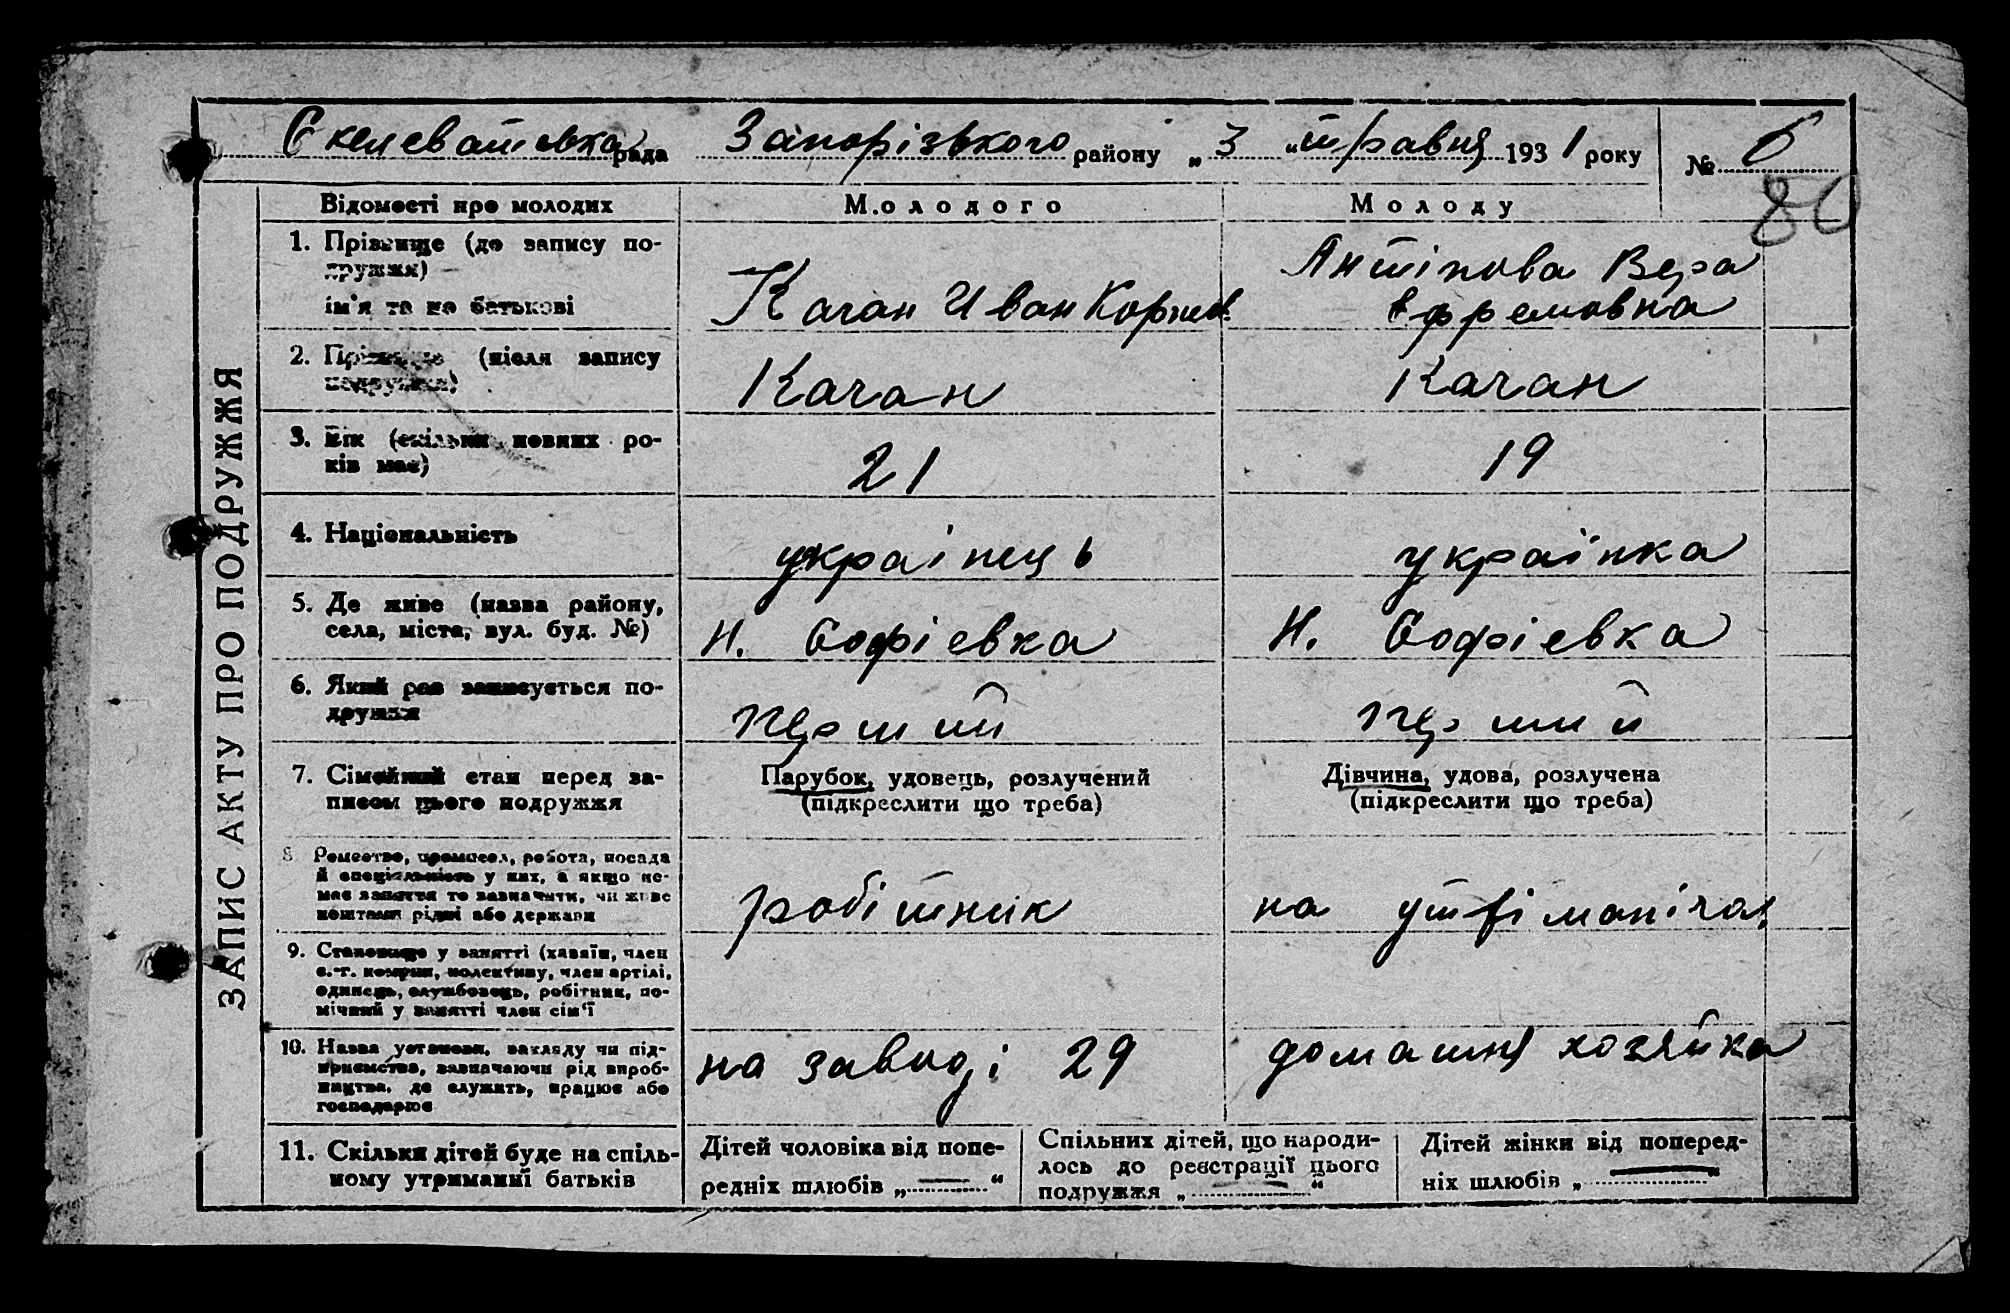 Скелеватська рада Запорізького району „ 3 " травня 1931 року № 6
80
ЗАПИС АКТУ ПРО ПОДРУЖЖЯ
Відомості про молодих
Молодого
Молоду
1. Прізвище (до запису по-
дружжя)
ім'я та по батькові
Качан Иван Корнев.
Антіпова Вера
Ефремовна
2. Прізвище (після запису
подружжя)
Качан
Качан
3. Вік (скільки повних ро-
ків має)
21
19
4. Національність
украінець
украінка
5. Де живе (назва району,
села, міста, вул. буд. №)
Н. Софіевка
Н. Софіевка
6. Який раз записується по-
дружжя
перший
перший
7. Сімейний стан перед за-
писом цього подружжя
Парубок, удовець, розлучений
(підкреслити що треба)
Дівчина, удова, розлучена
(підкреслити що треба)
8 Ремество, промисел, робота, посада
й спеціяльність у них, а якщо не-
має заняття то зазначити, чи живе
коштами рідні або держави
робітник
на
9. Становище у занятті (хазяїн, член
с.-г. комуни, колективу, член артілі,
одинець, службовець, робітник, по-
мічний у занятті член сім'ї
10. Назва установи, закладу чи під-
приємства, зазначаючи рід вироб-
ництва, де служить, працює або
господарює
на заводі 29
домашня хозяйка
11. Скільки дітей буде на спіль-
ному утриманні батьків
Дітей чоловіка від попе-
редніх шлюбів „ — "
Спільних дітей, що народи-
лось до реєстрації цього
подружжя „ — "
Дітей жінки від поперед-
ніх шлюбів „ — "